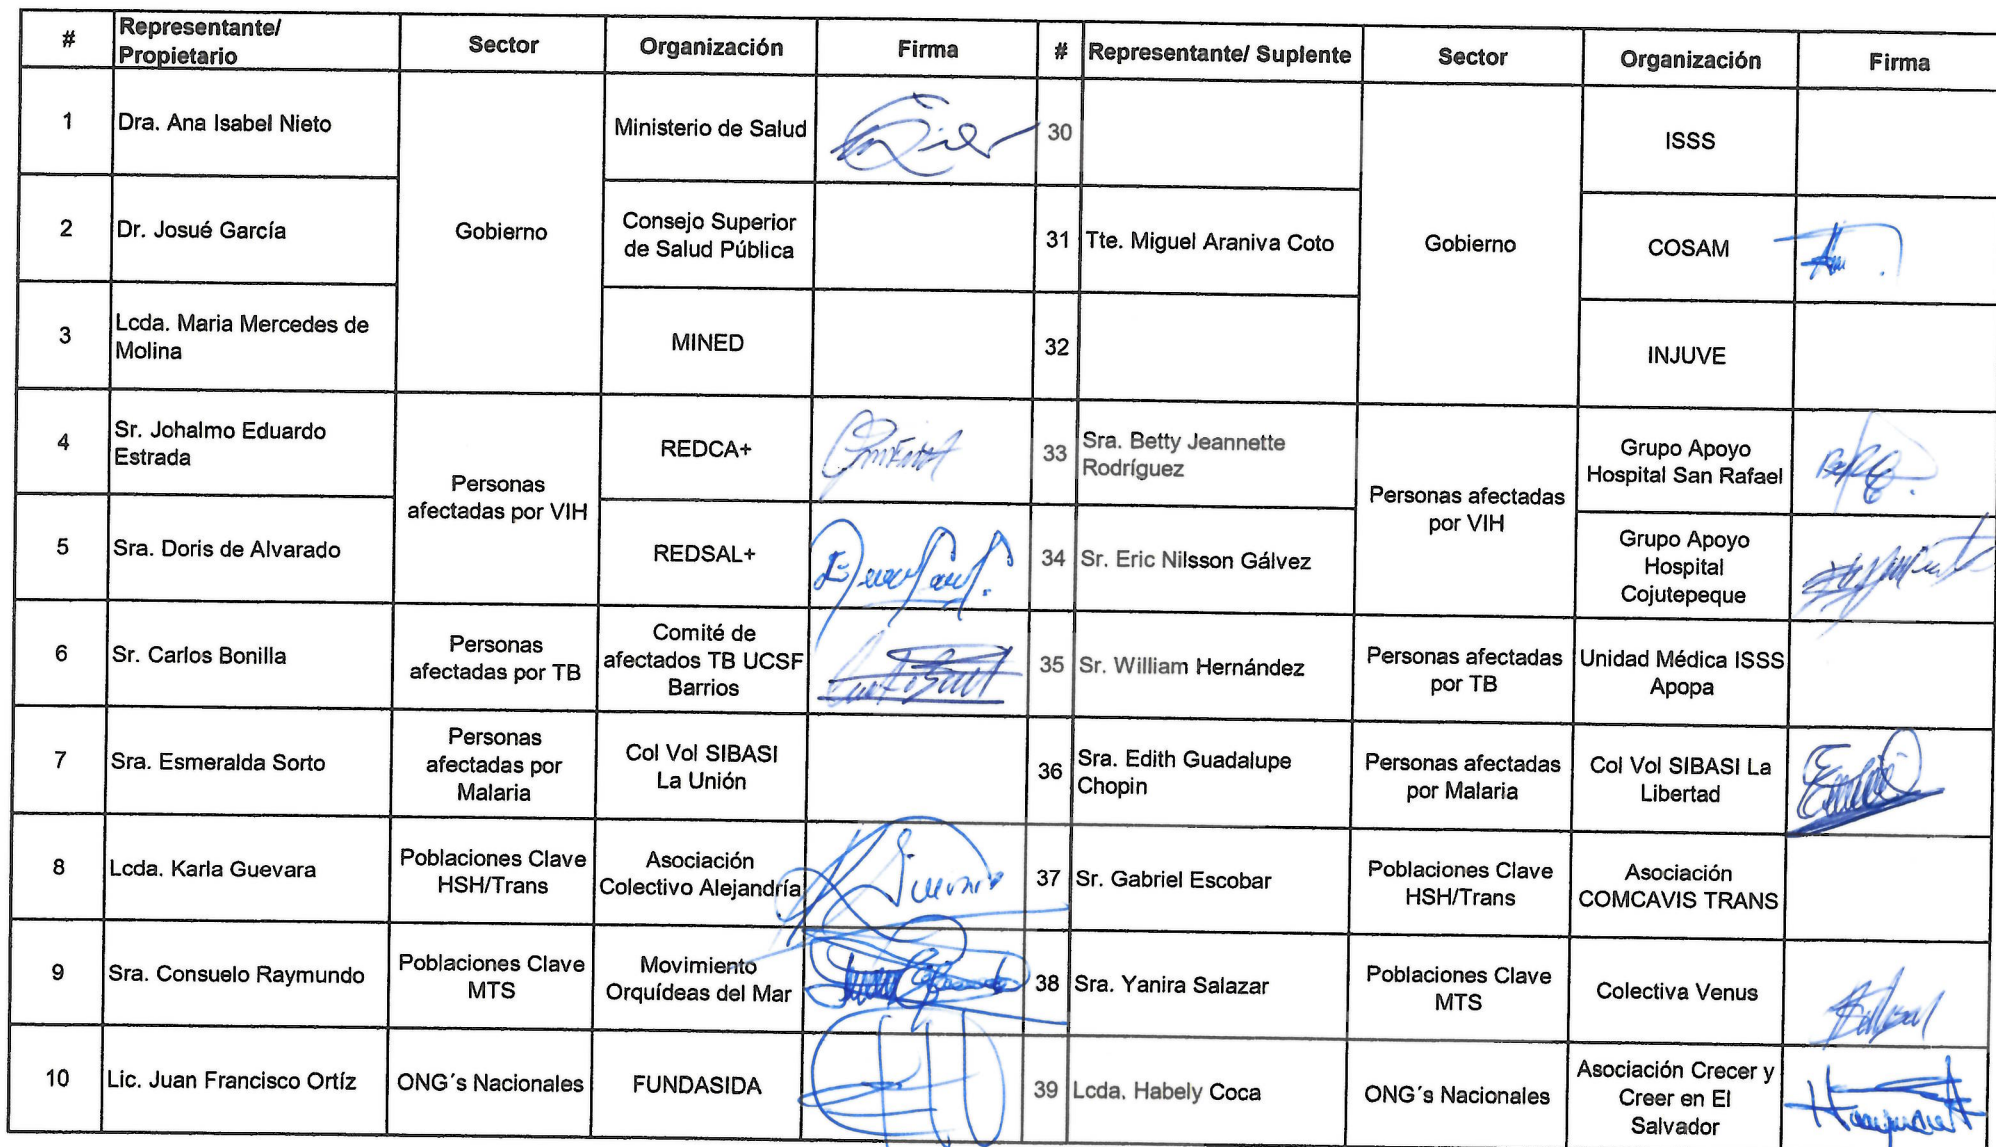 # Representante/ Propietario Sector Organización Firma # Representante/ Suplente Sector Organización Firma
1 Dra. Ana Isabel Nieto Gobierno Ministerio de Salud 30 Gobierno ISSS
2 Dr. Josué García Consejo Superior de Salud Pública 31 Tte. Miguel Araniva Coto COSAM
3 Lcda. Maria Mercedes de Molina MINED 32 INJUVE
4 Sr. Johalmo Eduardo Estrada Personas afectadas por VIH REDCA+ 33 Sra. Betty Jeannette Rodríguez Personas afectadas por VIH Grupo Apoyo Hospital San Rafael
5 Sra. Doris de Alvarado REDSAL+ 34 Sr. Eric Nilsson Gálvez Grupo Apoyo Hospital Cojutepeque
6 Sr. Carlos Bonilla Personas afectadas por TB Comité de afectados TB UCSF Barrios 35 Sr. William Hernández Personas afectadas por TB Unidad Médica ISSS Apopa
7 Sra. Esmeralda Sorto Personas afectadas por Malaria Col Vol SIBASI La Unión 36 Sra. Edith Guadalupe Chopin Personas afectadas por Malaria Col Vol SIBASI La Libertad
8 Lcda. Karla Guevara Poblaciones Clave HSH/Trans Asociación Colectivo Alejandría 37 Sr. Gabriel Escobar Poblaciones Clave HSH/Trans Asociación COMCAVIS TRANS
9 Sra. Consuelo Raymundo Poblaciones Clave MTS Movimiento Orquídeas del Mar 38 Sra. Yanira Salazar Poblaciones Clave MTS Colectiva Venus
10 Lic. Juan Francisco Ortíz ONG´s Nacionales FUNDASIDA 39 Lcda. Habely Coca ONG´s Nacionales Asociación Crecer y Creer en El Salvador